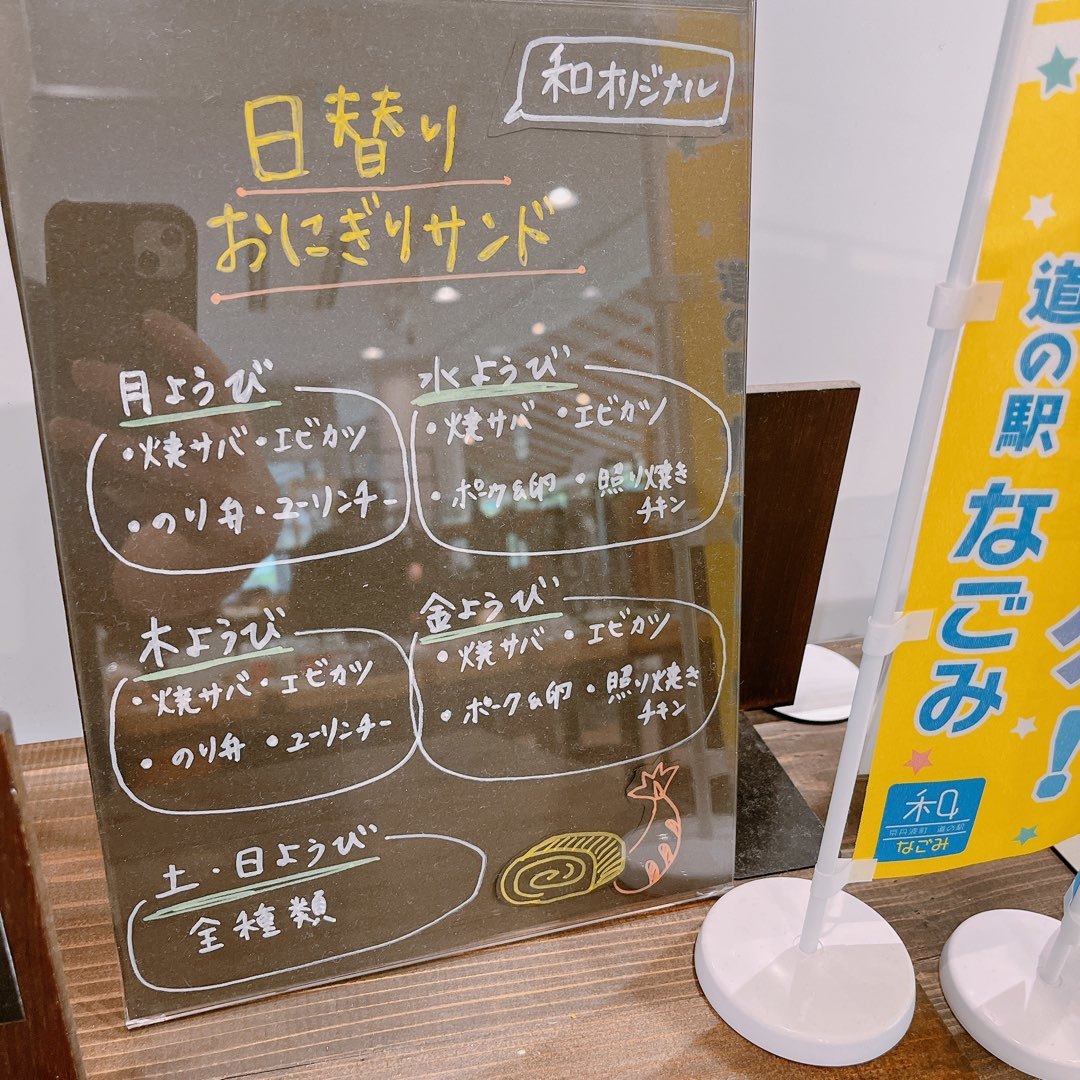 和オリジナル
日替り
おにぎりサンド
月ようび
・焼サバ・エビカツ
・のり弁・ユーリンチー
水ようび
・焼サバ ・エビカツ
・ポーク&卵 ・照り焼き
チキン
木ようび
・焼サバ・エビカツ
・のり弁 ・ユーリンチー
金ようび
・焼サバ ・エビカツ
・ポーク&卵 ・照り焼き
チキン
土・日ようび
全種類
道の駅
なごみ
!
和
京丹波町 道の駅
なごみ